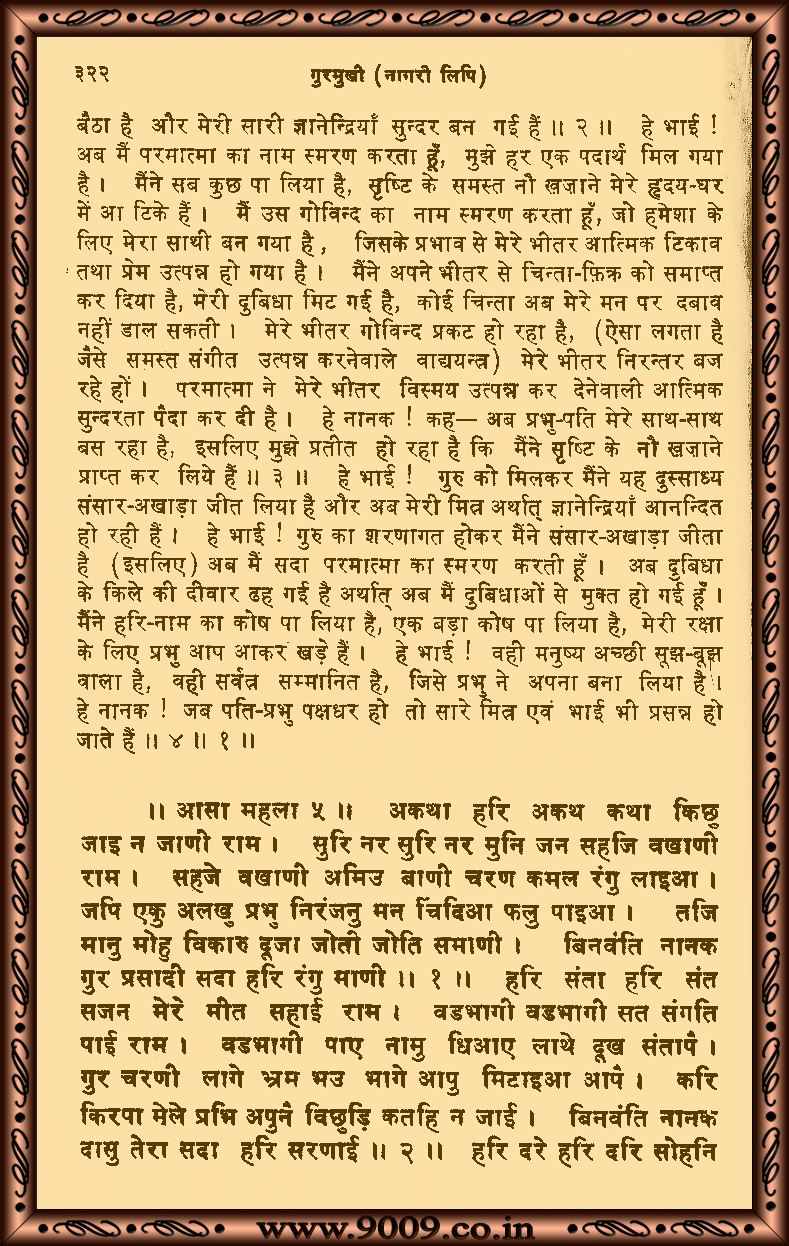 ३२२ गुरमुखी (नागरी लिपि)
बैठा है और मेरी सारी ज्ञानेन्द्रियाँ सुन्दर बन गई हैं ॥ २ ॥ हे भाई !
अब मैं परमात्मा का नाम स्मरण करता हूँ, मुझे हर एक पदार्थ मिल गया
है । मैंने सब कुछ पा लिया है, सृष्टि के समस्त नौ खज़ाने मेरे हृदय-घर
में आ टिके हैं । मैं उस गोविन्द का नाम स्मरण करता हूँ, जो हमेशा के
लिए मेरा साथी बन गया है, जिसके प्रभाव से मेरे भीतर आत्मिक टिकाव
तथा प्रेम उत्पन्न हो गया है । मैंने अपने भीतर से चिन्ता-फ़िक्र को समाप्त
कर दिया है, मेरी दुबिधा मिट गई है, कोई चिन्ता अब मेरे मन पर दबाव
नहीं डाल सकती । मेरे भीतर गोविन्द प्रकट हो रहा है, (ऐसा लगता है
जैसे समस्त संगीत उत्पन्न करनेवाले वाद्ययन्त्र) मेरे भीतर निरन्तर बज
रहे हों । परमात्मा ने मेरे भीतर विस्मय उत्पन्न कर देनेवाली आत्मिक
सुन्दरता पैदा कर दी है । हे नानक ! कह— अब प्रभु-पति मेरे साथ-साथ
बस रहा है, इसलिए मुझे प्रतीत हो रहा है कि मैंने सृष्टि के नौ खज़ाने
प्राप्त कर लिये हैं ॥ ३ ॥ हे भाई ! गुरु को मिलकर मैंने यह दुस्साध्य
संसार-अखाड़ा जीत लिया है और अब मेरी मित्र अर्थात् ज्ञानेन्द्रियाँ आनन्दित
हो रही हैं । हे भाई ! गुरु का शरणागत होकर मैंने संसार-अखाड़ा जीता
है (इसलिए) अब मैं सदा परमात्मा का स्मरण करती हूँ । अब दुबिधा
के किले की दीवार ढह गई है अर्थात् अब मैं दुबिधाओं से मुक्त हो गई हूँ ।
मैंने हरि-नाम का कोष पा लिया है, एक बड़ा कोष पा लिया है, मेरी रक्षा
के लिए प्रभु आप आकर खड़े हैं । हे भाई ! वही मनुष्य अच्छी सूझ-बूझ
वाला है, वही सर्वत्र सम्मानित है, जिसे प्रभु ने अपना बना लिया है ।
हे नानक ! जब पति-प्रभु पक्षधर हो तो सारे मित्र एवं भाई भी प्रसन्न हो
जाते हैं ॥ ४ ॥ १ ॥
॥ आसा महला ५ ॥ अकथा हरि अकथ कथा किछु
जाइ न जाणी राम । सुरि नर सुरि नर मुनि जन सहजि वखाणी
राम । सहजे वखाणी अमिउ बाणी चरण कमल रंगु लाइआ ।
जपि एकु अलखु प्रभु निरंजनु मन चिंदिआ फलु पाइआ । तजि
मानु मोहु विकारु दूजा जोती जोति समाणी । बिनवंति नानक
गुर प्रसादी सदा हरि रंगु माणी ॥ १ ॥ हरि संता हरि संत
सजन मेरे मीत सहाई राम । वडभागी वडभागी सत संगति
पाई राम । वडभागी पाए नामु धिआए लाथे दूख संतापै ।
गुर चरणी लागे भ्रम भउ भागे आपु मिटाइआ आपै । करि
किरपा मेले प्रभि अपुनै विछुड़ि कतहि न जाई । बिनवंति नानक
दासु तेरा सदा हरि सरणाई ॥ २ ॥ हरि दरे हरि दरि सोहनि
www.9009.co.in